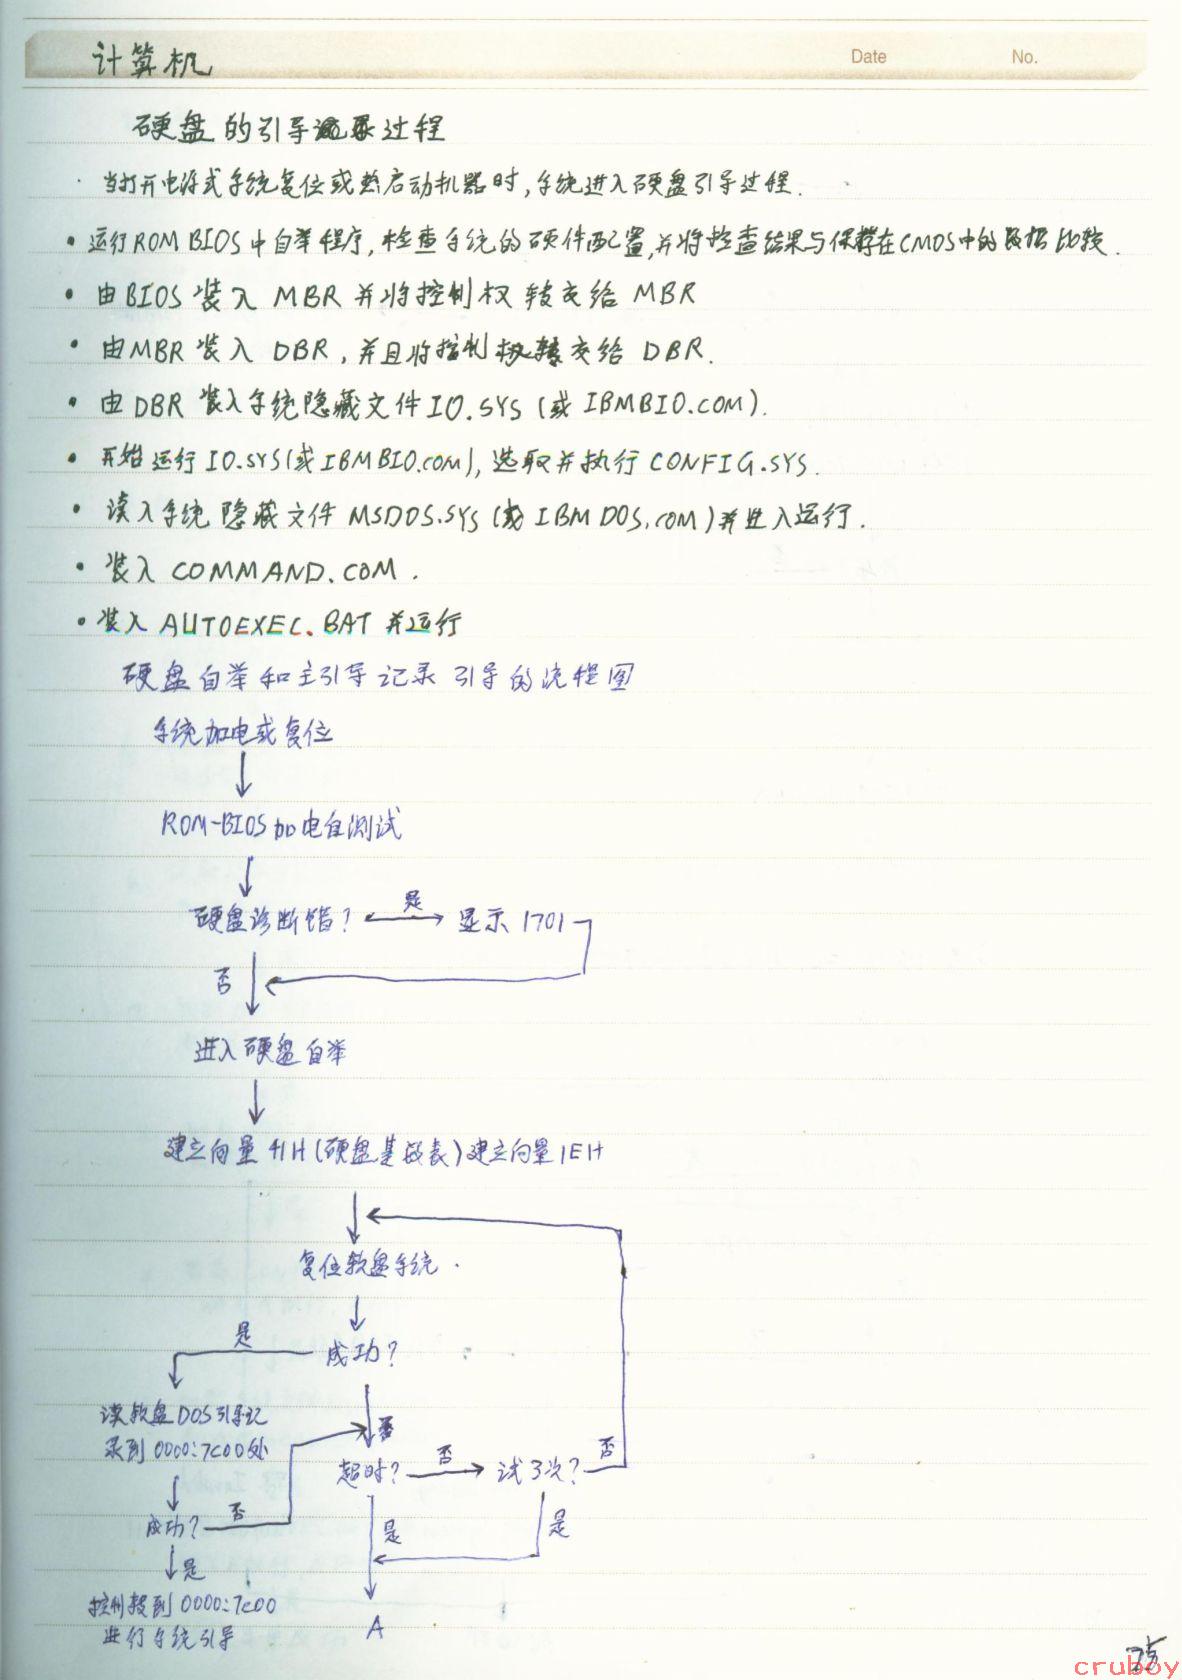 计算机
Date
No.
硬盘的引导过程
当打开电源或系统复位或热启动机器时,系统进入硬盘引导过程.
• 运行ROM BIOS中自举程序,检查系统的硬件配置,并将检查结果与保存在CMOS中的数据比较.
• 由BIOS装入 MBR 并将控制权 转交给 MBR
• 由MBR 装入 DBR, 并且将控制权转交给 DBR.
• 由DBR 装入系统隐藏文件IO.SYS (或 IBMBIO.COM).
• 开始运行IO.SYS(或IBMBIO.COM), 选取并执行 CONFIG.SYS.
• 读入系统隐藏文件 MSDOS.SYS (或 IBMDOS.COM) 并进入运行.
• 装入 COMMAND.COM.
• 装入 AUTOEXEC.BAT 并运行
硬盘自举和主引导记录引导的流程图
系统加电或复位
ROM-BIOS加电自测试
硬盘诊断错?
是
显示 1701
否
进入硬盘自举
建立向量 41H (硬盘基数表) 建立向量 1EH
复位软盘系统.
是
成功?
读软盘DOS引导记
录到0000:7C00处
否
超时?
否
试3次?
否
成功?
否
是
是
是
控制转到0000:7C00
进行系统引导
A
75
cruboy